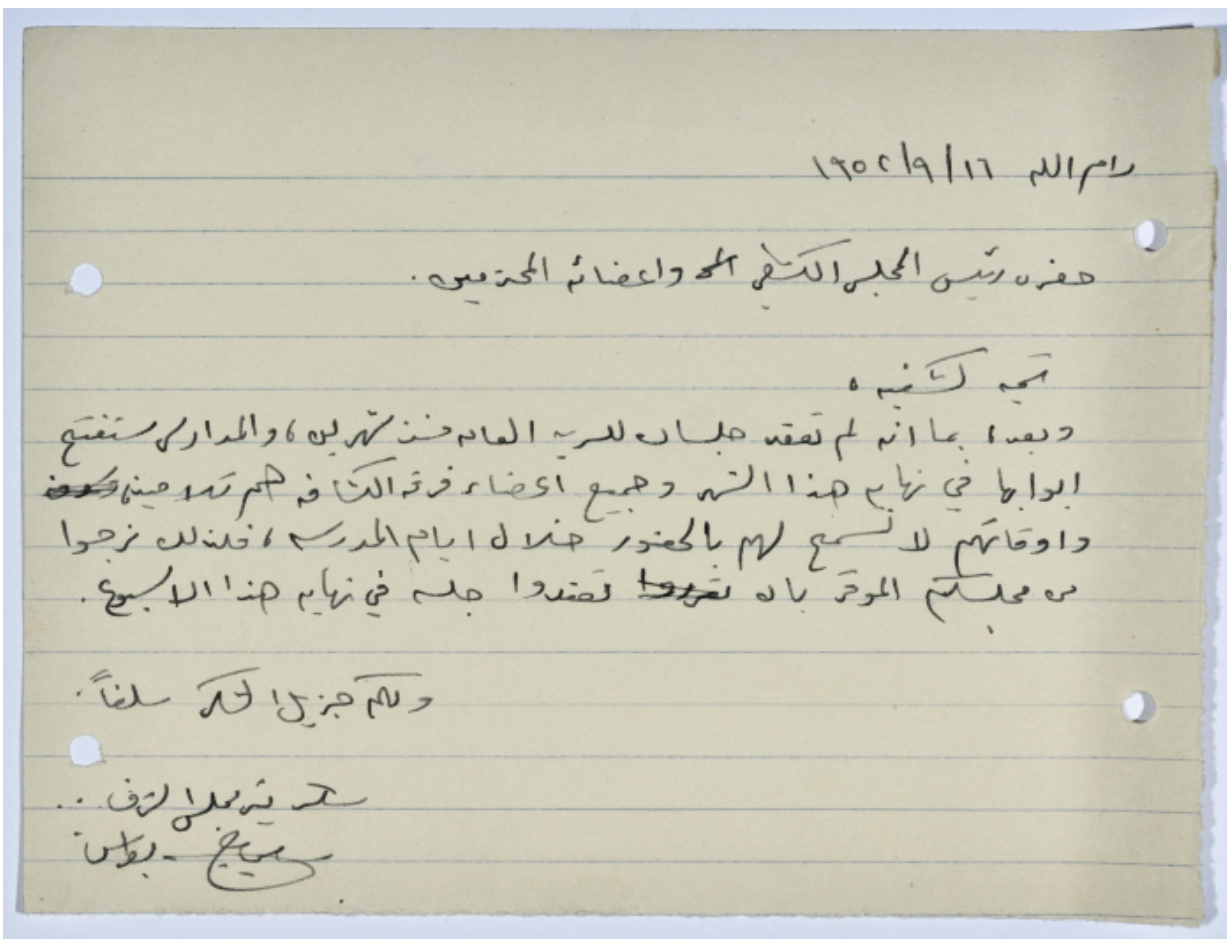 رام الله ١٦/٩/١٩٥٢
حضرة رئيس المجلس الكشفي واعضائه المحترمين.
تحية كشفيه،
وبعد، بما انه لم تعقد جلسات للسريه العامه منذ شهرين، والمدارس ستفتح
ابوابها في نهاية هذا الشهر وجميع اعضاء فرقة الكشافه هم تلاميذ،
واوقاتهم لا تسمح لهم بالحضور خلال ايام المدرسه، فلذلك نرجوا
من مجلسكم الموقر بان تقرروا تعقدوا جلسه في نهاية هذا الاسبوع.
ولكم جزيل الشكر سلفاً.
سكرتير مجلس الشرف...
بولس